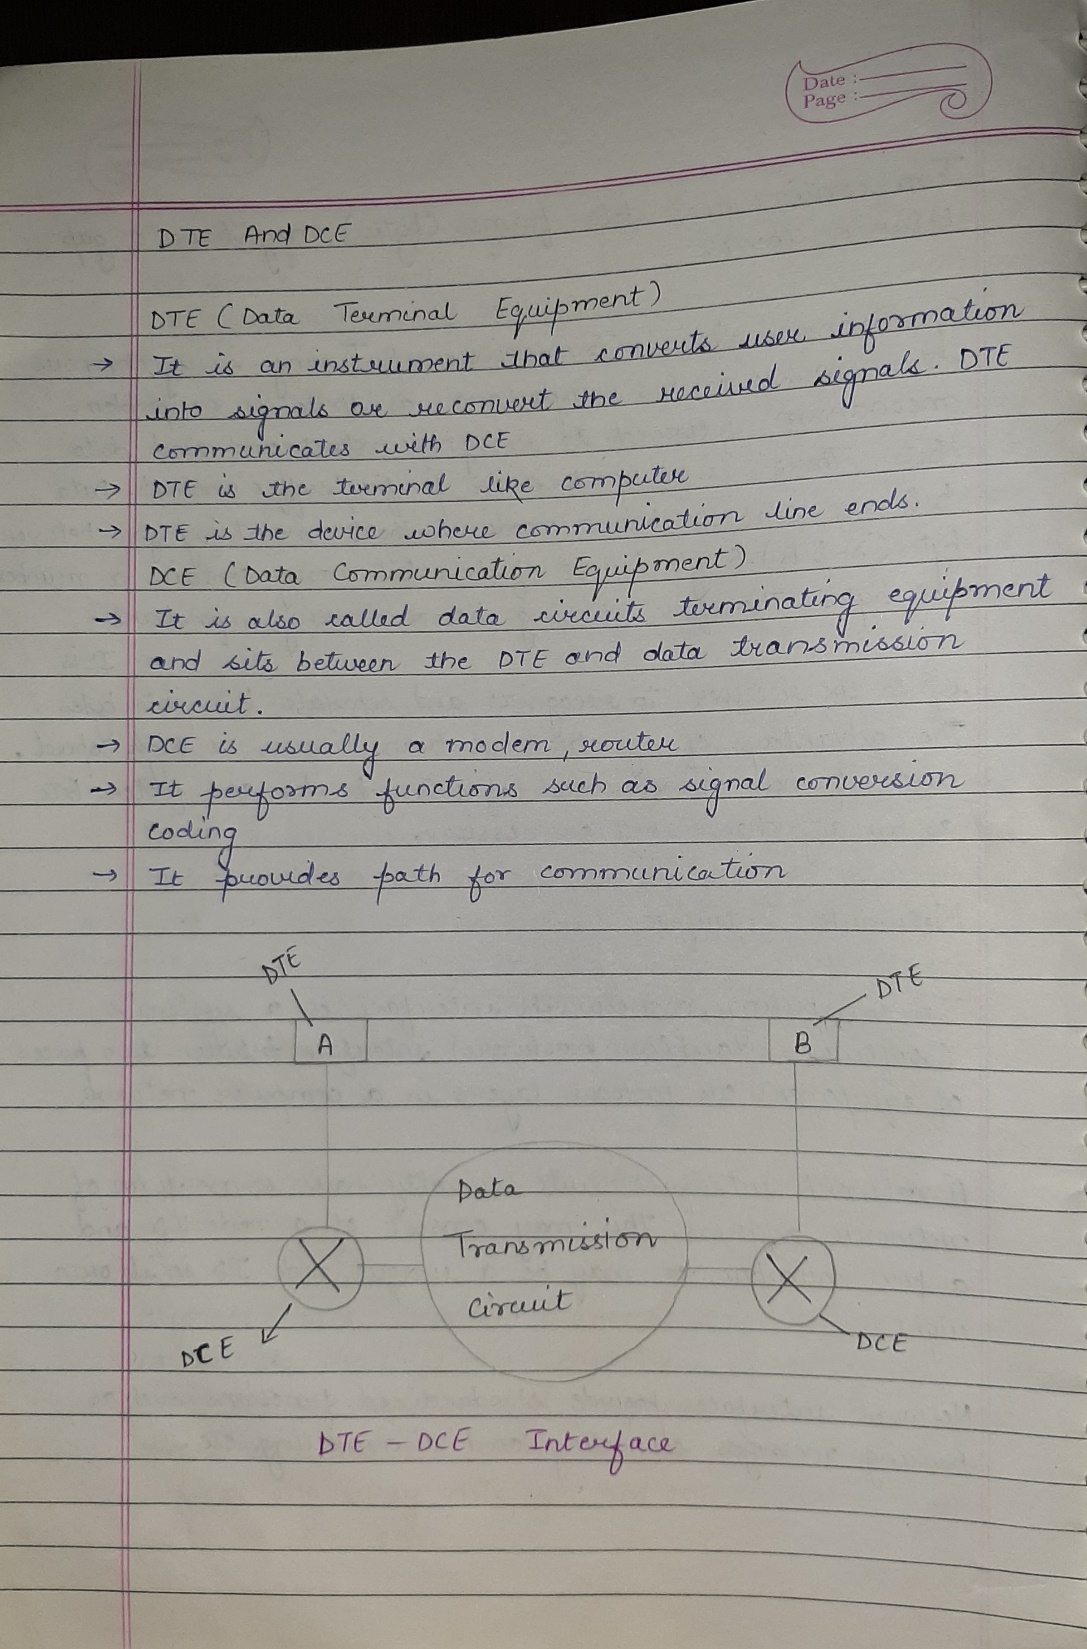 Date :
Page :
DTE And DCE
DTE (Data Terminal Equipment)
→ It is an instrument that converts user information
into signals or reconvert the received signals. DTE
communicates with DCE
→ DTE is the terminal like computer
→ DTE is the device where communication line ends.
DCE (Data Communication Equipment)
→ It is also called data circuits terminating equipment
and sits between the DTE and data transmission
circuit.
→ DCE is usually a modem, router
→ It performs functions such as signal conversion
coding
→ It provides path for communication
DTE
DTE
A
B
Data
Transmission
Circuit
DCE
DCE
DTE - DCE Interface